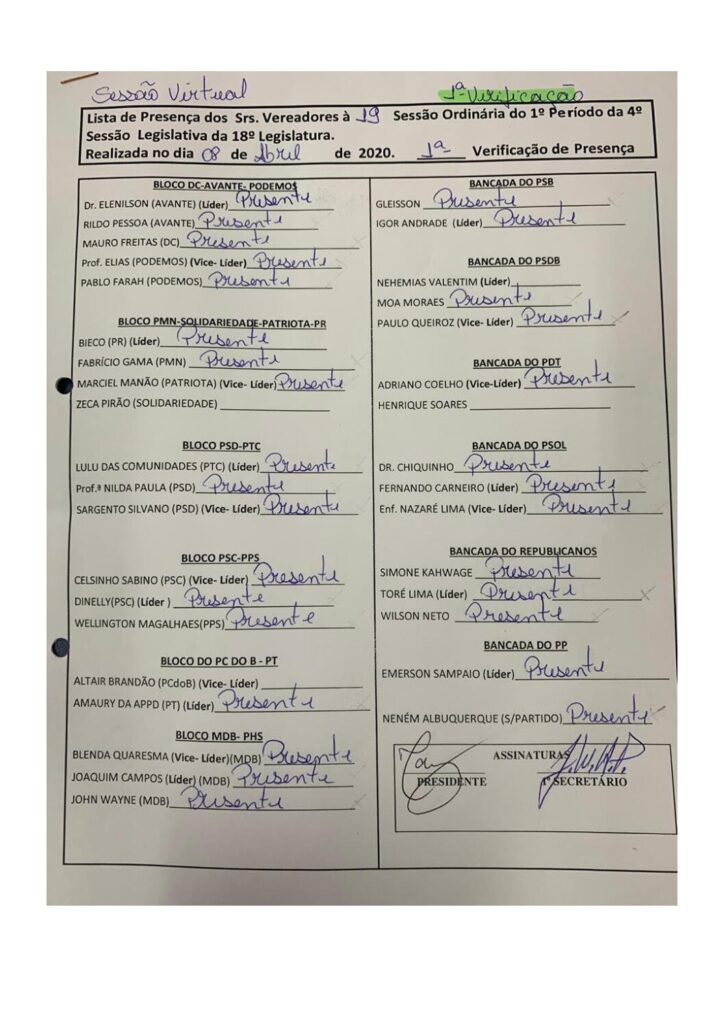 Sessão Virtual
1ª Verificação
Lista de Presença dos Srs. Vereadores à 19 Sessão Ordinária do 1º Período da 4º
Sessão Legislativa da 18º Legislatura.
Realizada no dia 08 de Abril de 2020. 1ª Verificação de Presença
BLOCO DC-AVANTE- PODEMOS
Dr. ELENILSON (AVANTE) (Líder) Presente
RILDO PESSOA (AVANTE) Presente
MAURO FREITAS (DC) Presente
Prof. ELIAS (PODEMOS) (Vice- Líder) Presente
PABLO FARAH (PODEMOS) Presente
BLOCO PMN-SOLIDARIEDADE-PATRIOTA-PR
BIECO (PR) (Líder) Presente
FABRÍCIO GAMA (PMN) Presente
MARCIEL MANÃO (PATRIOTA) (Vice- Líder) Presente
ZECA PIRÃO (SOLIDARIEDADE)
BLOCO PSD-PTC
LULU DAS COMUNIDADES (PTC) (Líder) Presente
Prof.ª NILDA PAULA (PSD) Presente
SARGENTO SILVANO (PSD) (Vice- Líder) Presente
BLOCO PSC-PPS
CELSINHO SABINO (PSC) (Vice- Líder) Presente
DINELLY(PSC) (Líder ) Presente
WELLINGTON MAGALHAES(PPS) Presente
BLOCO DO PC DO B - PT
ALTAIR BRANDÃO (PCdoB) (Vice- Líder)
AMAURY DA APPD (PT) (Líder) Presente
BLOCO MDB- PHS
BLENDA QUARESMA (Vice- Líder)(MDB) Presente
JOAQUIM CAMPOS (Líder) (MDB) Presente
JOHN WAYNE (MDB) Presente
BANCADA DO PSB
GLEISSON Presente
IGOR ANDRADE (Líder) Presente
BANCADA DO PSDB
NEHEMIAS VALENTIM (Líder)
MOA MORAES Presente
PAULO QUEIROZ (Vice- Líder) Presente
BANCADA DO PDT
ADRIANO COELHO (Vice-Líder) Presente
HENRIQUE SOARES
BANCADA DO PSOL
DR. CHIQUINHO Presente
FERNANDO CARNEIRO (Líder) Presente
Enf. NAZARÉ LIMA (Vice- Líder) Presente
BANCADA DO REPUBLICANOS
SIMONE KAHWAGE Presente
TORÉ LIMA (Líder) Presente
WILSON NETO Presente
BANCADA DO PP
EMERSON SAMPAIO (Líder) Presente
NENÉM ALBUQUERQUE (S/PARTIDO) Presente
ASSINATURAS
PRESIDENTE 1º SECRETÁRIO